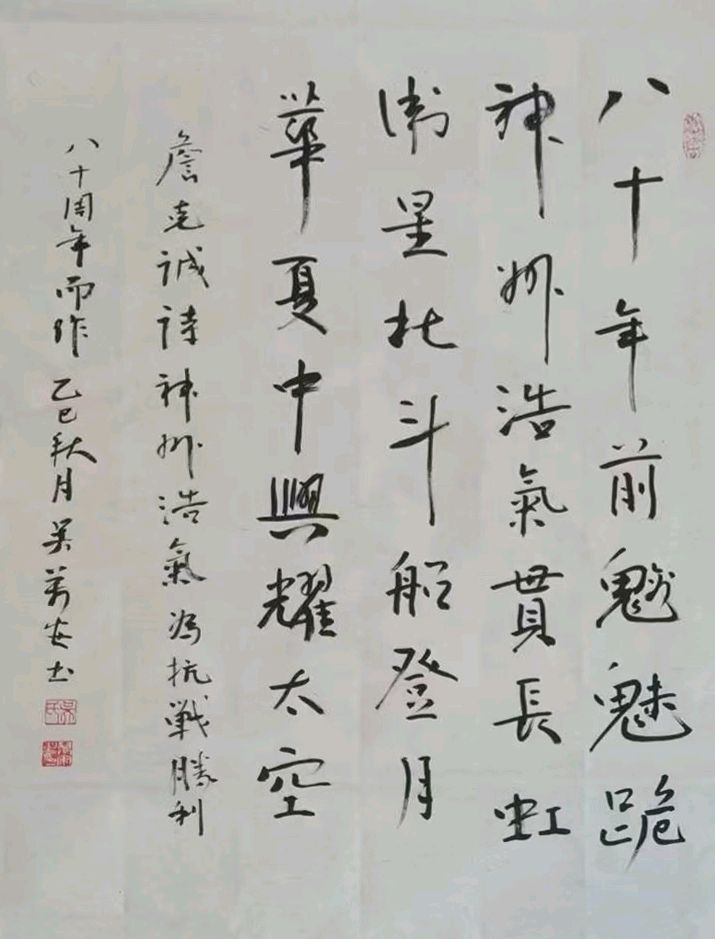 八十年前魑魅跪
神州浩氣貫長虹
衛星北斗船登月
華夏中興耀太空
詹克誠詩神州浩氣為抗戰勝利
八十周年而作 乙巳秋月吴萬安书